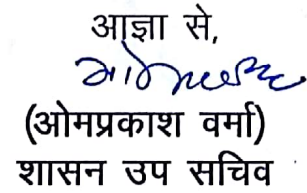 आज्ञा से,
(ओमप्रकाश वर्मा)
शासन उप सचिव